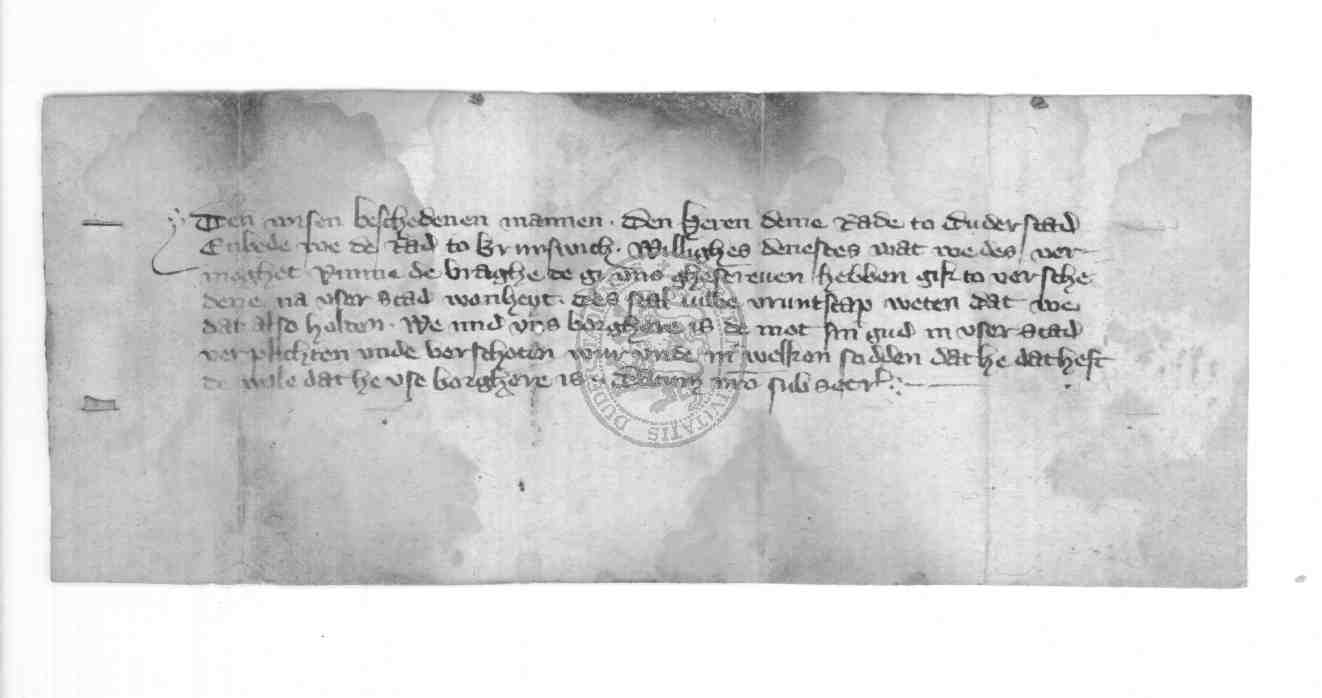 Den wisen beschedenen mannen. den heren deme Rade to Duderstad
Enbede we de Rad to Brunswich. Willighes denestes wat we des ver
moghet Vmme de vraghe de gi vns ghescreuen hebben gik to versche
dene na vser stad wonheyt. des scal iuwe vruntscap weten dat we
dat also holden. We vns borghere is de mot sin gud in vser stad
ver plichten vnde vorschoten wur vnde in welken so dden dat he dat heft
de wile dat he vse borghere is. Datum nostro sub secreto